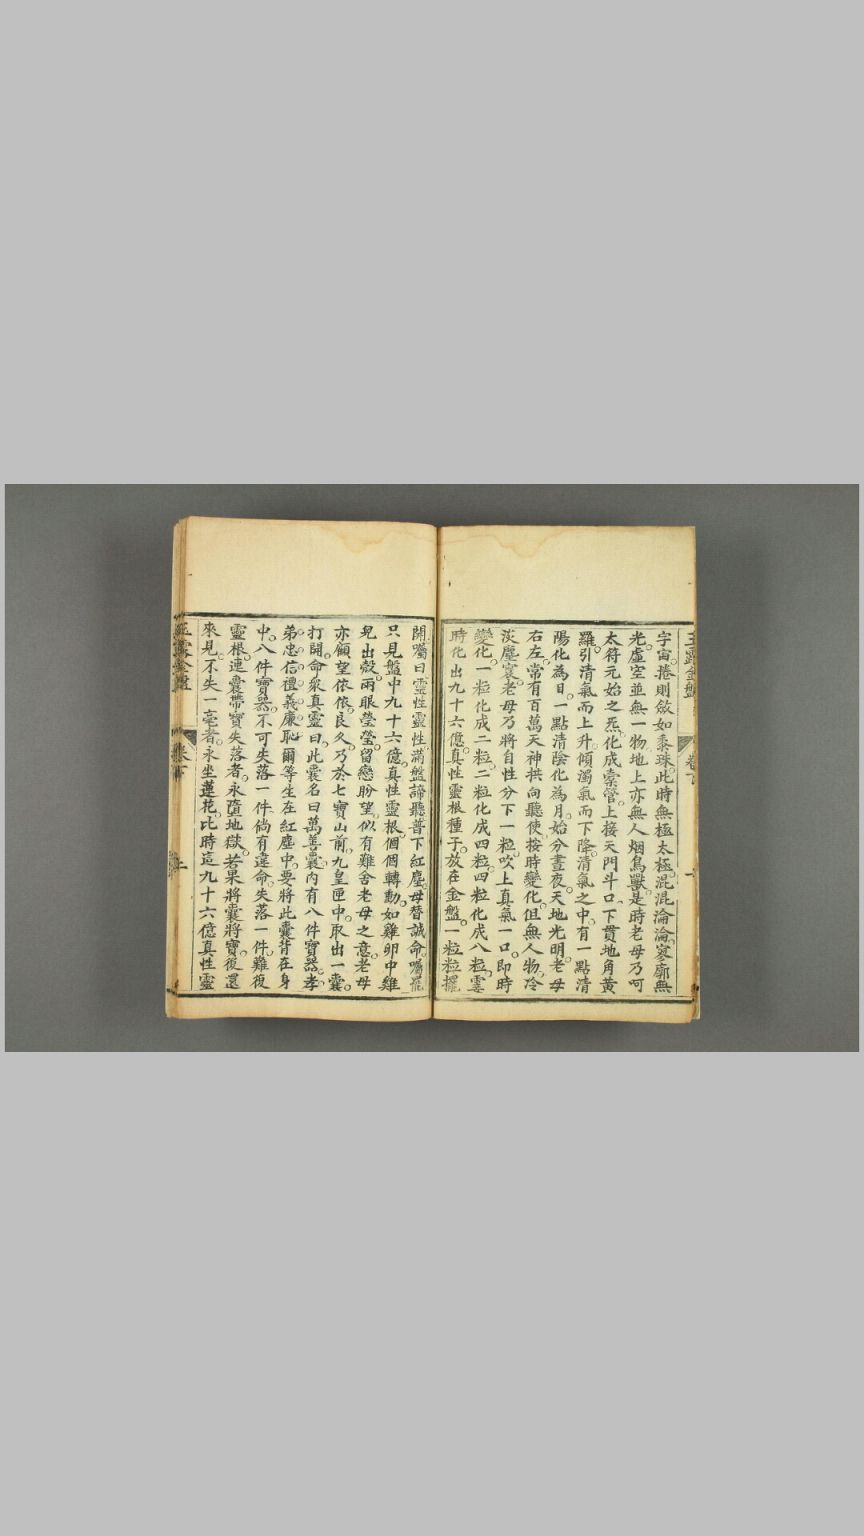 宇宙。捲則斂如黍珠。此時無極太極。混混淪淪。寥廓無
光。虛空並無一物。地上亦無人烟鳥獸。是時老母乃呵
太符元始之炁。化成橐管。上接天門斗口。下貫地角黃
羅。引清氣而上升。傾濁氣而下降。清氣之中。有一點清
陽化為日。一點清陰化為月。始分晝夜。天地光明。老母
右左。常有百萬天神拱向聽使。按時變化。但無人物。冷
淡塵寰。老母乃將自性分下一粒。吹上真氣一口。即時
變化。一粒化成二粒。二粒化成四粒。四粒化成八粒。霎
時化出九十六億。真性靈根種子。放在金盤。一粒粒擺
開。囑曰。靈性靈性。滿盤諦聽。普下紅塵。母替誠命。囑罷
只見盤中九十六億。真性靈根。個個轉動。如雞卵中雞
兒出殼。兩眼瑩瑩。留戀盼望。似有難舍老母之意。老母
亦顧望依依。良久。乃於七寶山前。九皇匣中。取出一囊。
打開。命眾真靈曰。此囊名曰萬善囊。內有八件寶器。孝
弟忠信禮義廉恥。爾等生在紅塵中。要將此囊背在身
中。八件寶器。不可失落一件。倘有違命。失落一件。難復
靈根。連囊帶寶失落者。永墮地獄。若果將囊將寶。復還
來見。不失一毫者。永坐蓮花。比時這九十六億真性靈